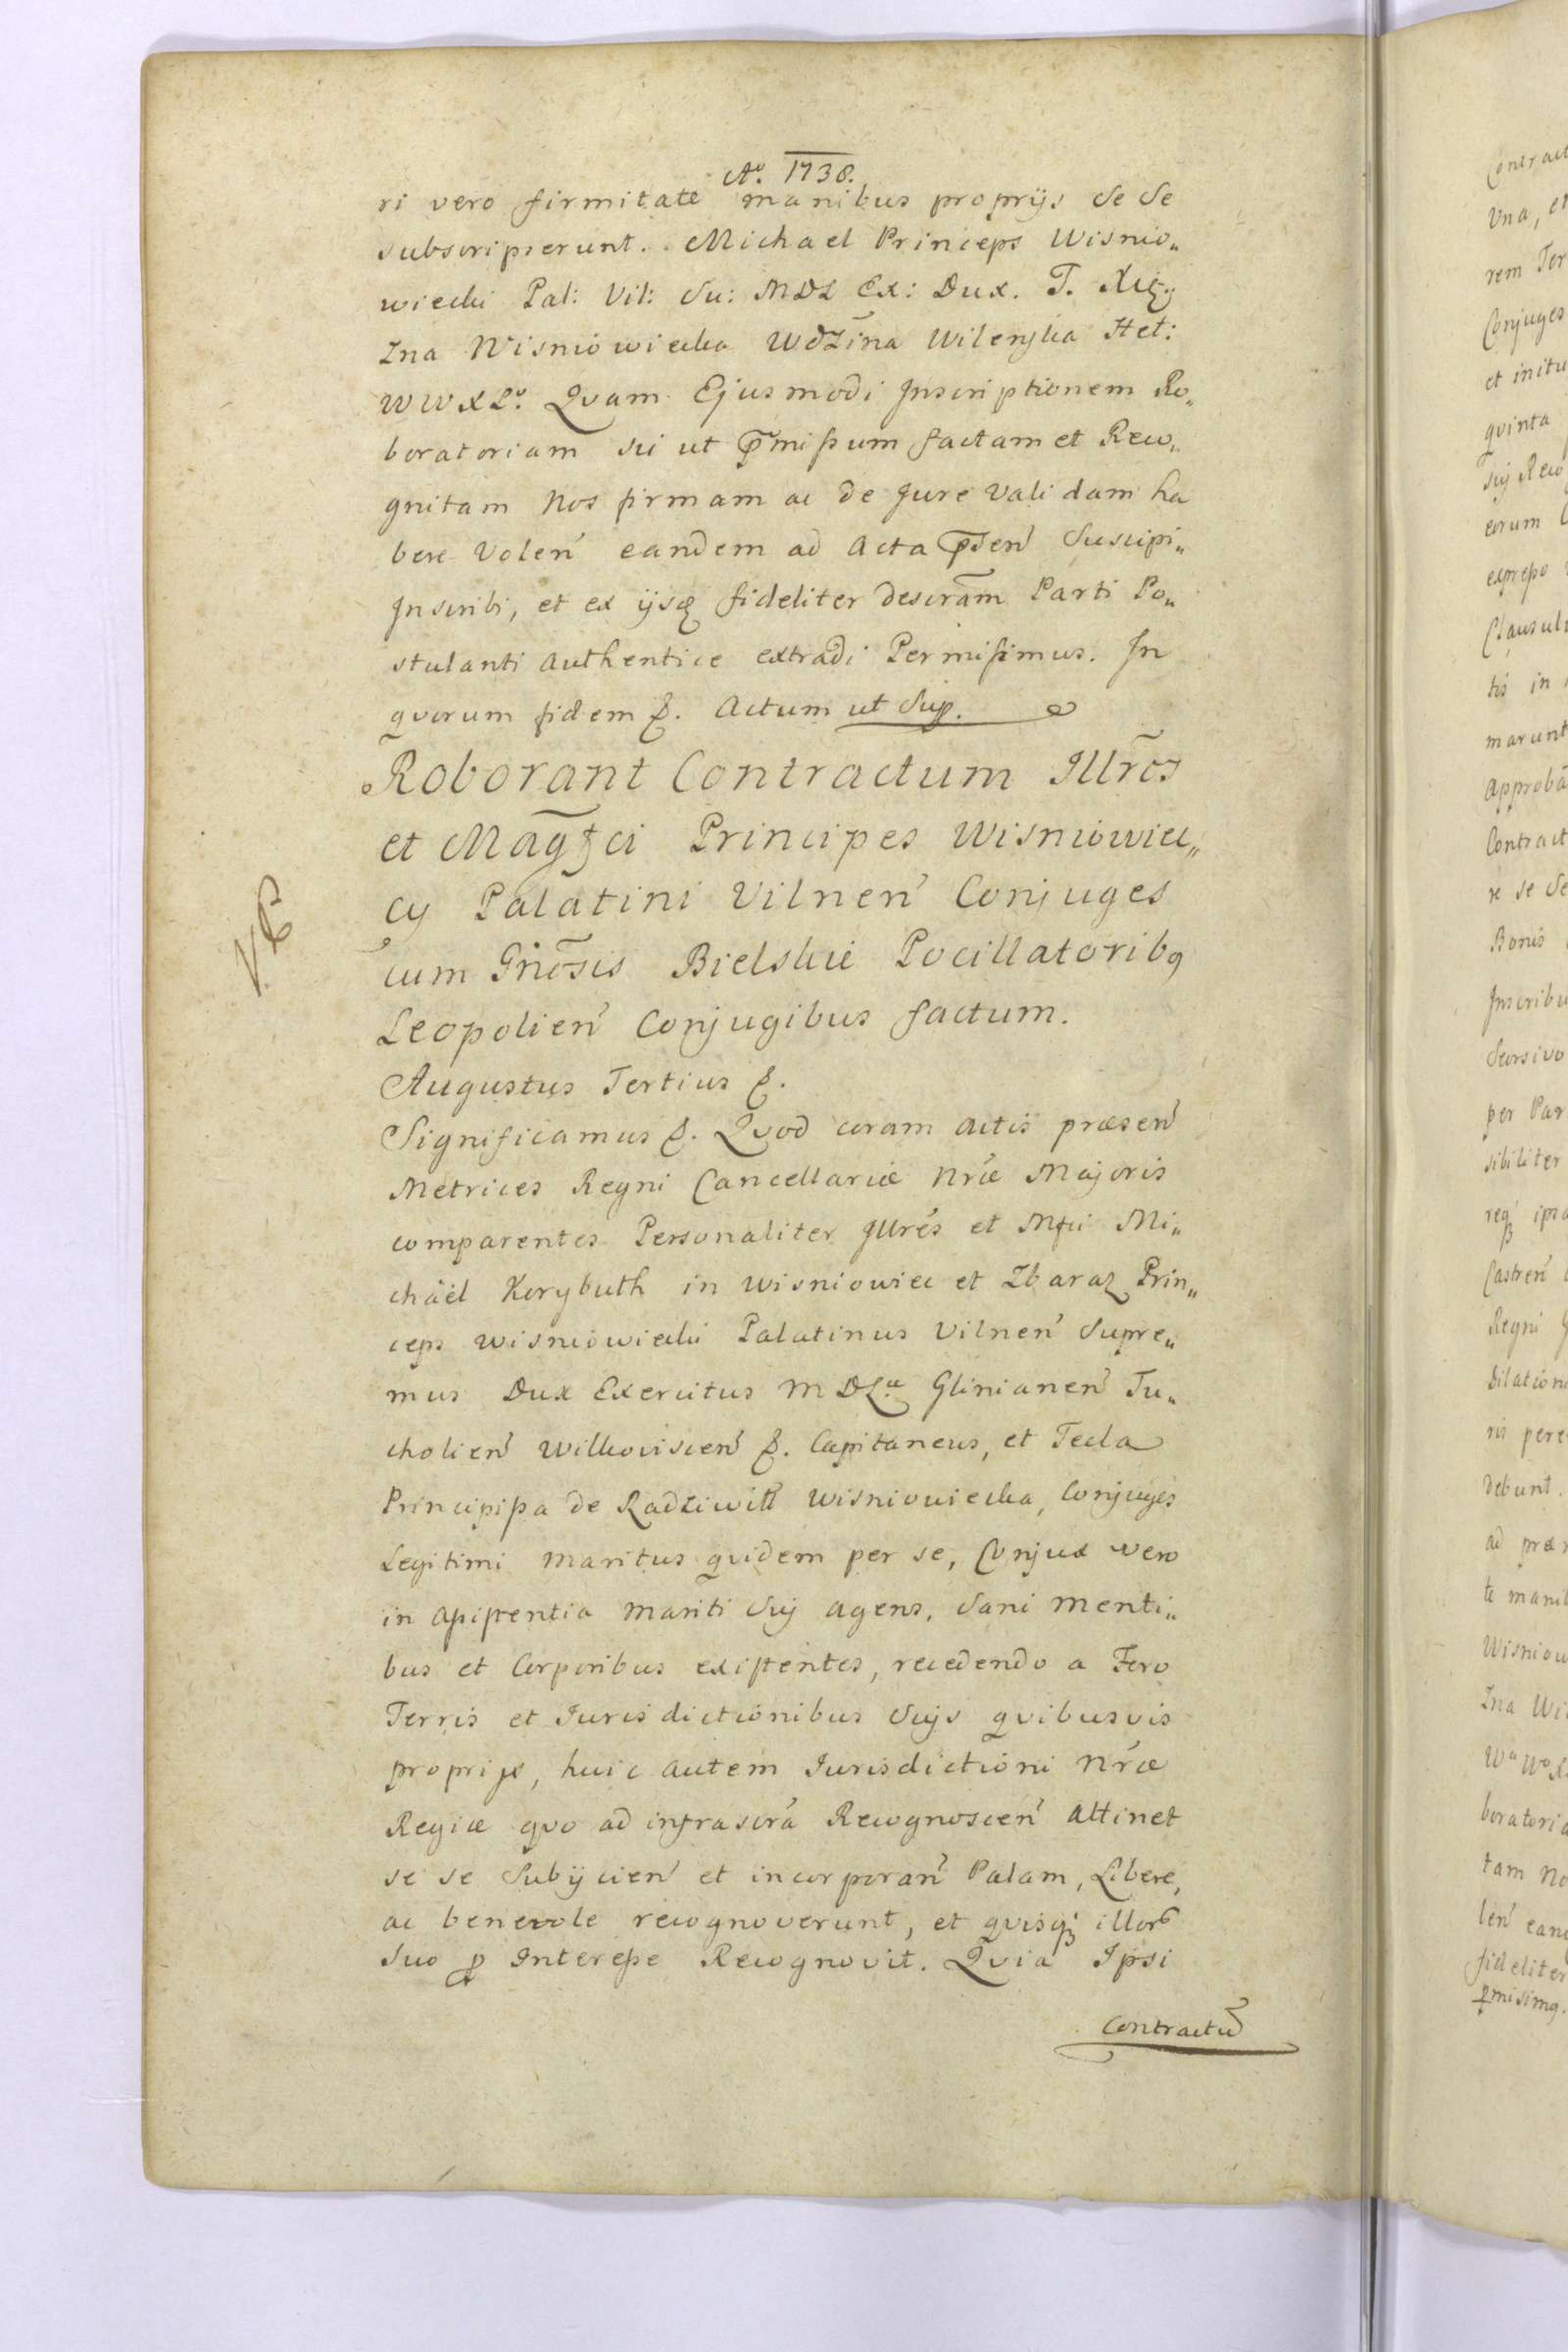 Aº. 1738.
ri vero firmitate manibus proprijs Se Se
subscripserunt. Michael Princeps Wisnio„
wiecki Pal: Vil: Su: MDL Ex: Dux. T. Xię.
Zna Wisniowiecka WdZina Wilenska Het:
WWXLº. Qvam Ejusmodi Inscriptionem Ro„
boratoriam sic ut p̃missum factam et Reco„
gnitam Nos firmam ac de Jure Validam ha
bere Volen̛ eandem ad Acta p̃sen̛ Suscipi„
Inscribi, et ex ijsq̃ fideliter descrãm Parti Po„
stulanti Authentice extradi Permisimus. In
qvorum fidem &. Actum ut Sup.
Roborant Contractum Illrẽs
et Magfci Principes Wisniowiec„
cy Palatini Vilnen̛ Conjuges
cum Gnõsis Bielskie Pocillatorib9
Leopolien̛ Conjugibus factum.
Augustus Tertius &.
Significamus &. Qvod coram Actis præsen̛
Metrices Regni Cancellariæ Nræ Majoris
comparentes Personaliter Illres et Mfci Mi„
chäel Korybuth in Wisniowiec et Zbaraz Prin„
ceps Wisniowiecki Palatinus Vilnen̛ Supre„
mus Dux Exercitus MDLæ Glinianen̛ Tu„
cholien̛ Wilkoviscen̛ &. Capitaneus, et Tecla
Principissa de Radziwill Wisniowiecka, Conjuges
Legitimi Maritus qvidem per se, Conjux vero
in Assistentia Mariti Sui agens, Sani Menti„
bus et Corporibus existentes, recedendo a Foro
Terris et Jurisdictionibus Suis qvibusvis
proprijs, huic autem Jurisdictioni Nræ
Regiæ qvo ad infrascra Recognoscen̛ Attinet
se se Subijcien̛ et incorporan̛ Palam, Libere,
ac benevole recognoverunt, et qvisq; illor
Suo p Interesse Recognovit. Qvia Ipsi
Contractũ
V.
Contract
Una, et
rem Ter
Conjuges
et initu
qvinta
Sui Reco
eorum
expresso
Clausul
tis in
marunt
Approba
Contract
re se Se
Bonis
Inscribu
Seorsivo
per Par
sibiliter
req; ipsa
Castren̛
Regni
Dilation
ris pere
debunt.
ad præ
te manib
Wisniow
Zna Wi
Wa Wo X
boratoria
tam No
len̛ eand
fideliter
p̃misim9.